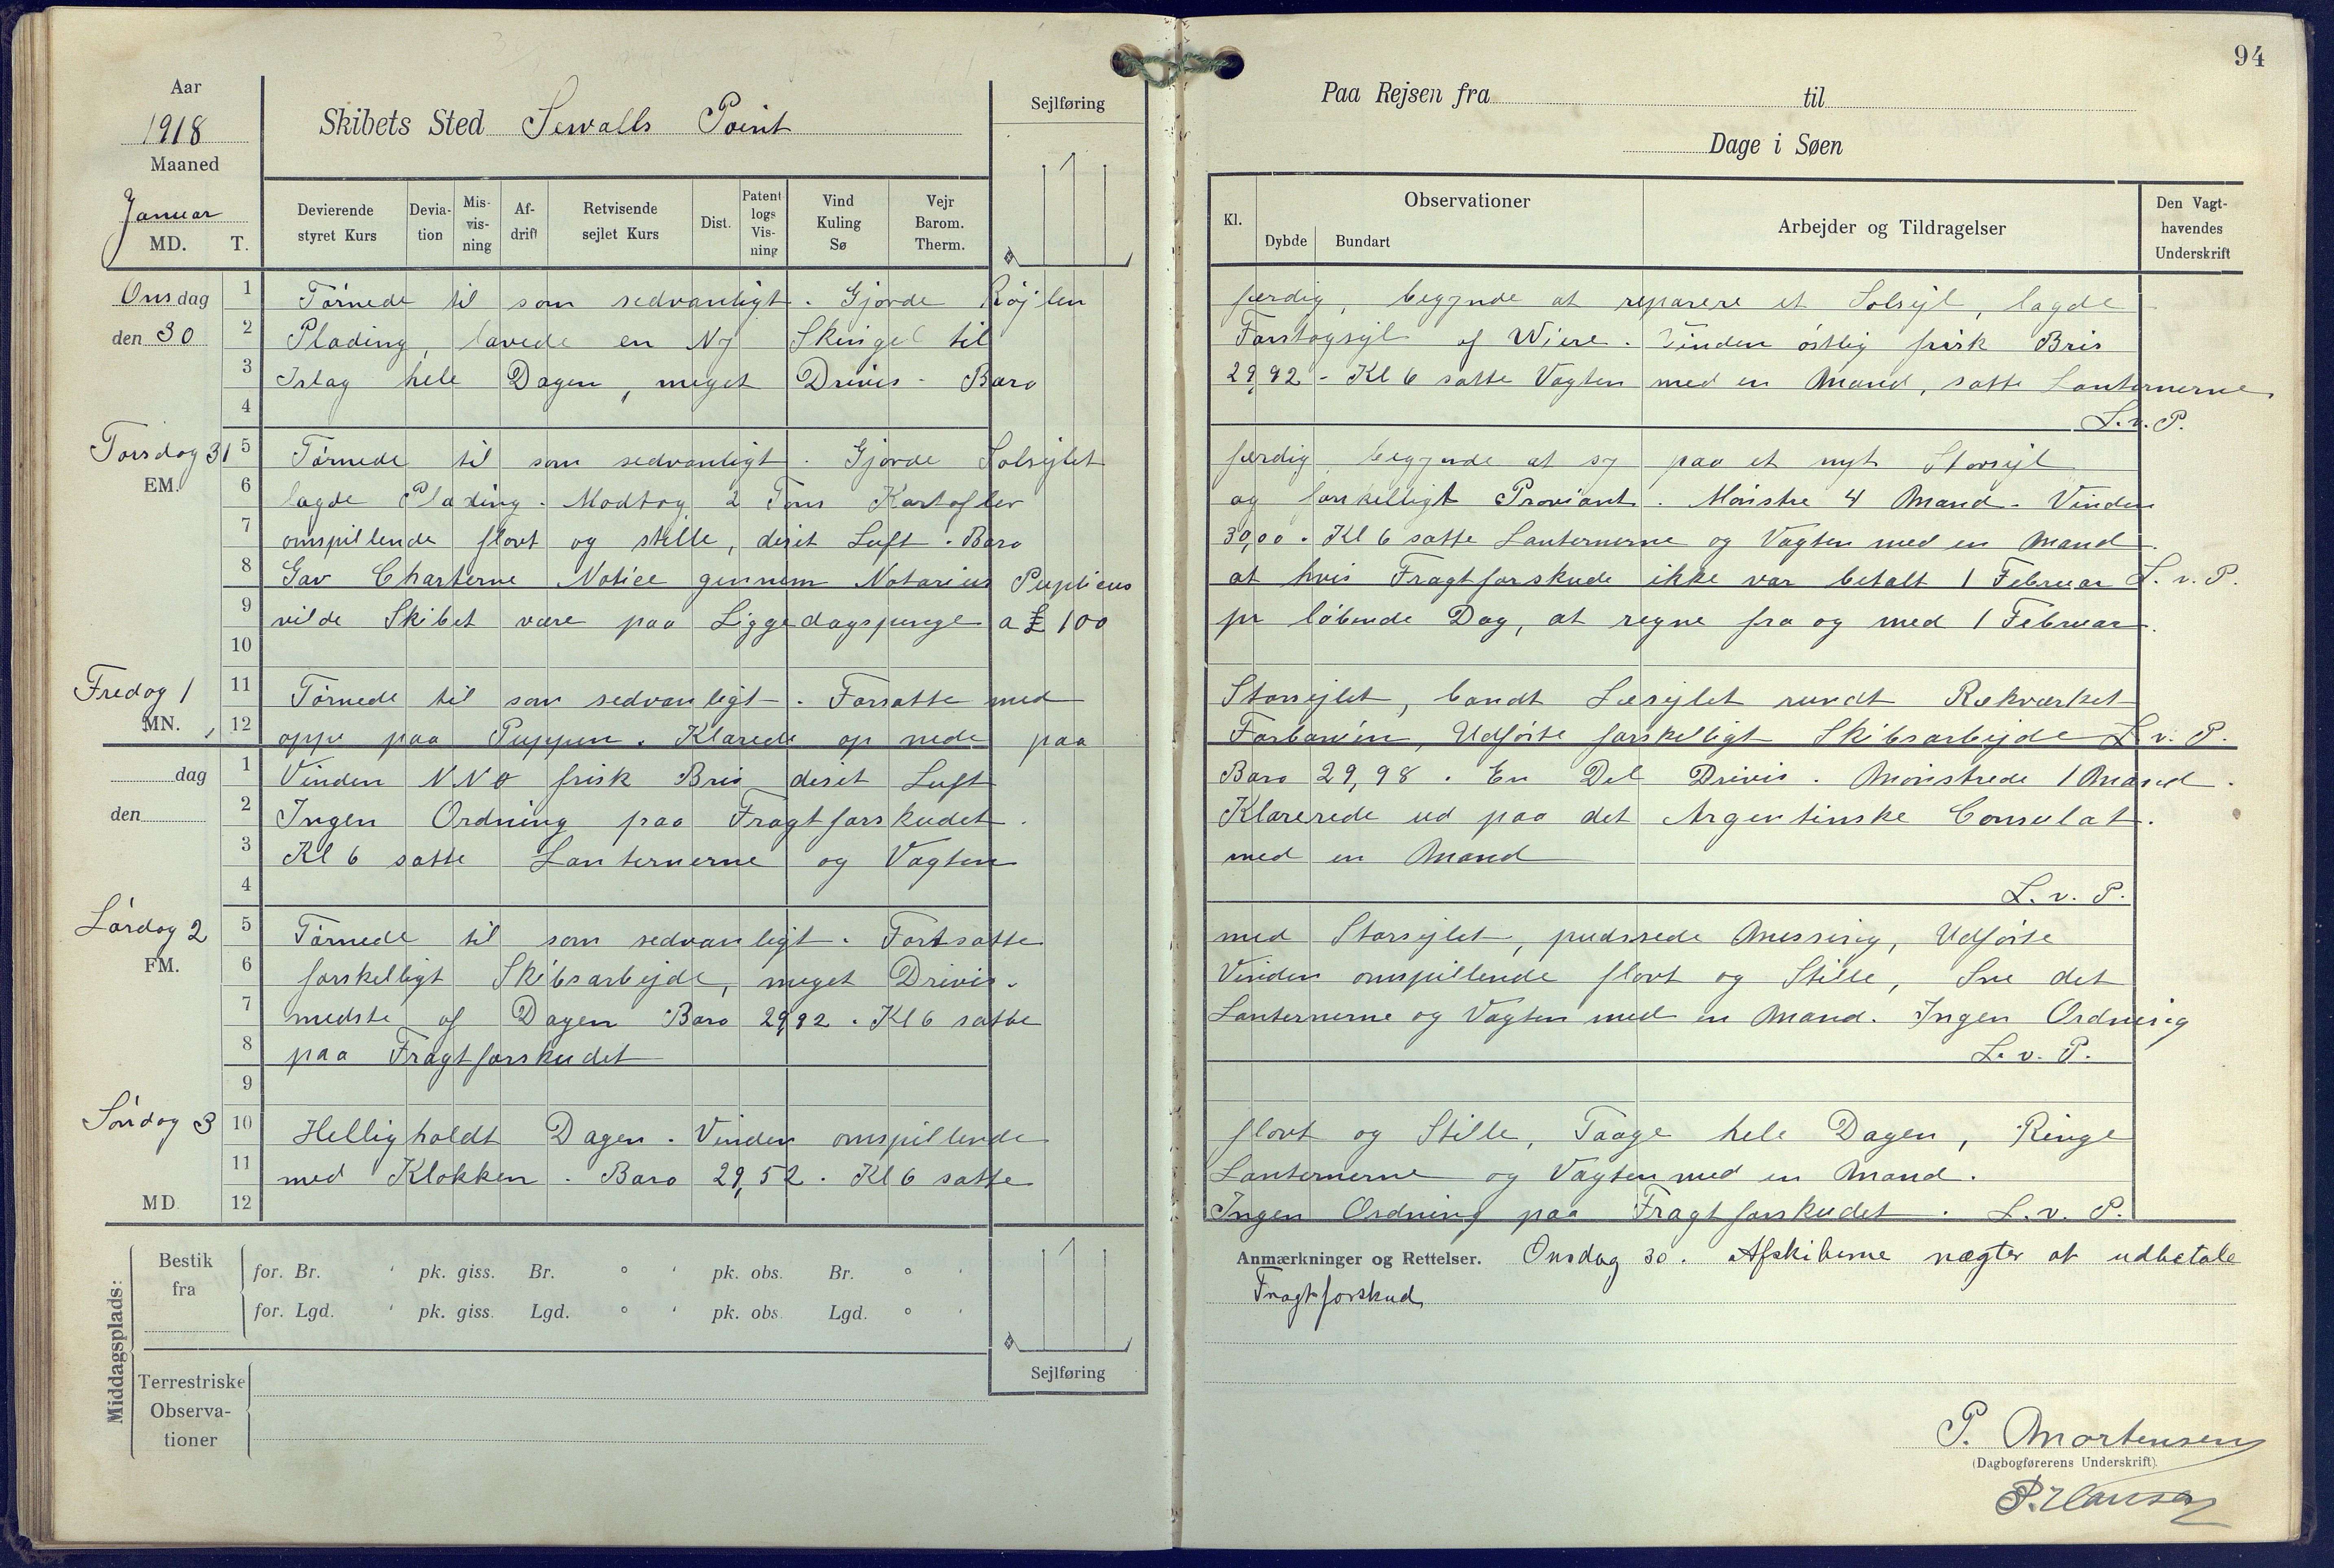 94
Aar
1918
Maaned
Januar
MD. T.
Skibets Sted Sewalls Point
Sejlføring
Devierende styret Kurs
Deviation
Misvisning
Afdrift
Retvisende sejlet Kurs
Dist.
Patent logs Visning
Vind Kuling Sø
Vejr Barom. Therm.
Paa Rejsen fra til
Dage i Søen
Kl.
Observationer
Dybde Bundart
Arbejder og Tildragelser
Den Vagthavendes Underskrift
Onsdag
den 30
1 Tørnede til som sedvanligt. Gjorde Røjlen færdig, begynde at reparere et Solsejl, lagde
2 Plading, lavede en Ny Skingel til Forstagsejl af Wiere. Vinden østlig frisk Bris
3 Islag hele Dagen, meget Drivis. Baro 29,92 - Kl 6 satte Vagten med en Mand, satte Lanternerne
4 L. v. P.
Torsdag 31
EM.
5 Tørnede til som sedvanligt. Gjorde Solsejlet færdig, begynde at sy paa et nyt Storsejl
6 lagde Plading. Modtog 2 Tons Kartofler og forskelligt Proviant. Mønstre 4 Mand. Vinden
7 omspillende flovt og stille, diset Luft. Baro 30,00. Kl 6 satte Lanternerne og Vagten med en Mand.
8 Gav Charterne Notice gennem Notarius Puplicus at hvis Fragtforskude ikke var betalt 1 Februar L. v. P.
9 vilde Skibet være paa Liggedagspenge a £ 100 pr løbende Dag, at regne fra og med 1 Februar.
10
Fredag 1
MN.
11 Tørnede til som sedvanligt. Forsatte med Storsejlet, bandt Læsejlet rundt Rækværket
12 oppe paa Puppen. Klarede op nede paa Forbanien, Udførte forskelligt Skibsarbejde L. v. P.
dag
den
1 Vinden NNO frisk Bris diset Luft Baro 29,98. En Del Drivis. Mønstrede 1 Mand.
2 Ingen Ordning paa Fragtforskudet. Klarerede ud paa det Argentinske Consulat.
3 Kl 6 satte Lanternerne og Vagten med en Mand
4 L. v. P.
Lørdag 2
FM.
5 Tørnede til som sedvanligt. Fortsatte med Storsejlet, pudssede Messing, Udførte
6 forskelligt Skibsarbejde, meget Drivis. Vinden omspillende flovt og Stille, Sne det
7 medste af Dagen Baro 29,92. Kl 6 satte Lanternerne og Vagten med en Mand. Ingen Ordning
8 paa Fragtforskudet L. v. P.
9
Søndag 3
10 Helligholdt Dagen. Vinden omspillende flovt og Stille, Taage hele Dagen, Ringe
11 med Klokken. Baro 29,52. Kl 6 satte Lanternerne og Vagten med en Mand.
MD 12 Ingen Ordning paa Fragtforskudet. L. v. P.
Middagsplads:
Bestik fra
for. Br. ' pk. giss. Br. ° ' pk. obs. Br. ° '
for. Lgd. ' pk. giss. Lgd. ° ' pk. obs. Lgd. ° '
Terrestriske Observationer
Sejlføring
Anmærkninger og Rettelser. Onsdag 30. Afskiberne nægter at udbetale
Fragtforskud
P. Mortensen
(Dagbogførerens Underskrift)
P. Hansen